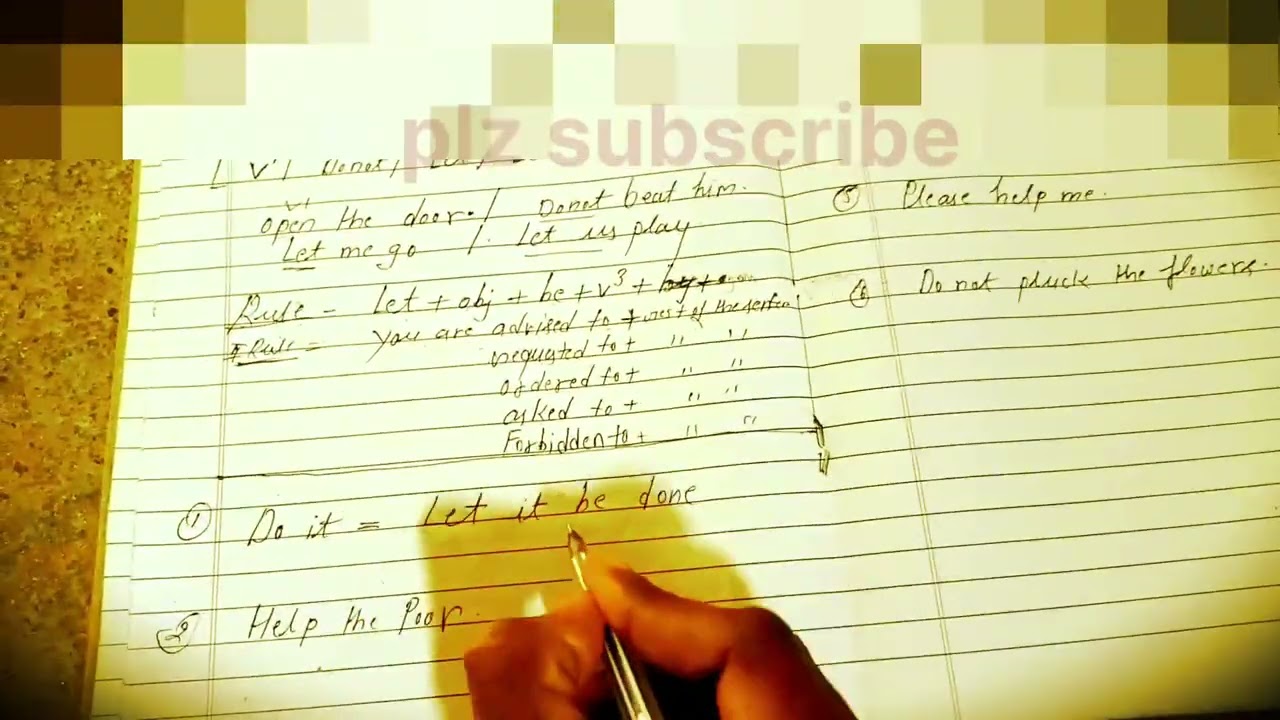 plz subscribe
[ V1 Donot, Let,
V1
open the door. / Donot beat him.
Let me go / Let us play
Rule - Let + obj + be + V3 +
Rule = You are advised to + rest of the
requested to + " "
ordered to + " "
asked to + " "
Forbidden to + " "
① Do it = Let it be done
② Help the Poor.
⑤ Please help me.
⑥ Do not pluck the flowers.